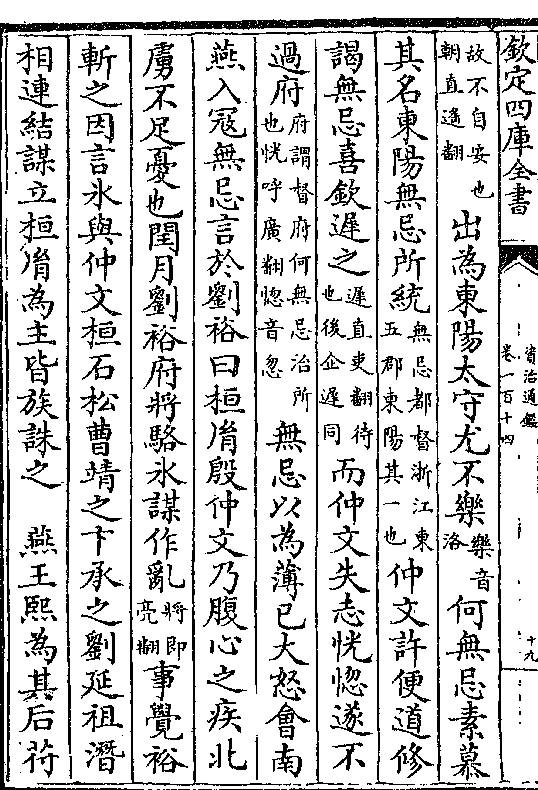 欽定四庫全書
資治通鑑
卷一百十四
十九
故不自安也
朝直遥翻
出為東陽太守尤不樂
樂音
洛
何無忌素慕
其名東陽無忌所統
無忌都督浙江東
五郡東陽其一也
仲文許便道修
謁無忌喜欽遲之
遲直吏翻待
也後企遲同
而仲文失志恍惚遂不
過府
府謂督府何無忌治所
也恍呼廣翻惚音忽
無忌以為薄已大怒會南
燕入寇無忌言於劉裕曰桓胤殷仲文乃腹心之疾北
虜不足憂也閏月劉裕府將駱氷謀作亂
將即
亮翻
事覺裕
斬之因言氷與仲文桓石松曹靖之卞承之劉延祖潛
相連結謀立桓胤為主皆族誅之
燕王熙為其后苻